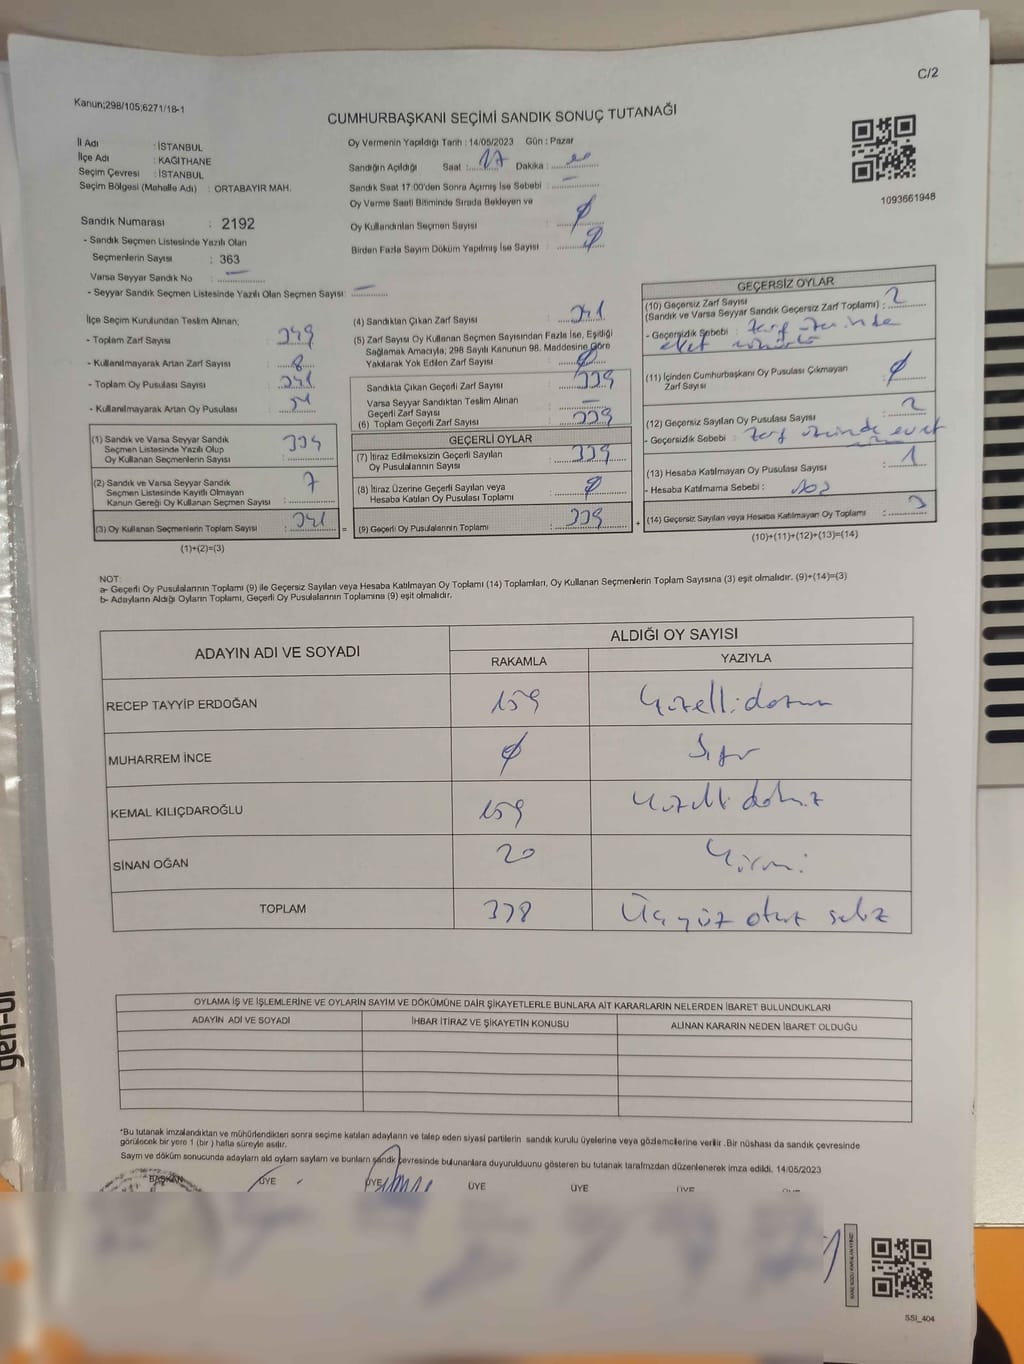 C/2
Kanun;298/105;6271/18-1
CUMHURBAŞKANI SEÇİMİ SANDIK SONUÇ TUTANAĞI
İl Adı : İSTANBUL
İlçe Adı : KAĞITHANE
Seçim Çevresi : İSTANBUL
Seçim Bölgesi (Mahalle Adı) : ORTABAYIR MAH.
Oy Vermenin Yapıldığı Tarih : 14/05/2023 Gün : Pazar
Sandığın Açıldığı Saat : 17 Dakika : 00
Sandık Saat 17.00'den Sonra Açımış İse Sebebi : –
Oy Verme Saati Bitiminde Sırada Bekleyen ve
Oy Kullandırılan Seçmen Sayısı : Ø
Birden Fazla Sayım Döküm Yapılmış İse Sayısı : Ø
1093661948
Sandık Numarası : 2192
- Sandık Seçmen Listesinde Yazılı Olan
Seçmenlerin Sayısı : 363
Varsa Seyyar Sandık No : –
- Seyyar Sandık Seçmen Listesinde Yazılı Olan Seçmen Sayısı: –
İlçe Seçim Kurulundan Teslim Alınan;
- Toplam Zarf Sayısı : 349
- Kullanılmayarak Artan Zarf Sayısı : 8
- Toplam Oy Pusulası Sayısı
- Kullanılmayarak Artan Oy Pusulası
(1) Sandık ve Varsa Seyyar Sandık
Seçmen Listesinde Yazılı Olup
Oy Kullanan Seçmenlerin Sayısı : 334
(2) Sandık ve Varsa Seyyar Sandık
Seçmen Listesinde Kayıtlı Olmayan
Kanun Gereği Oy Kullanan Seçmen Sayısı : 7
(3) Oy Kullanan Seçmenlerin Toplam Sayısı : 341 =
(1)+(2)=(3)
(4) Sandıktan Çıkan Zarf Sayısı : 341
(5) Zarf Sayısı Oy Kullanan Seçmen Sayısından Fazla İse, Eşitliği
Sağlamak Amacıyla; 298 Sayılı Kanunun 98. Maddesine Göre
Yakılarak Yok Edilen Zarf Sayısı : Ø
Sandıkta Çıkan Geçerli Zarf Sayısı : 339
Varsa Seyyar Sandıktan Teslim Alınan
Geçerli Zarf Sayısı : –
(6) Toplam Geçerli Zarf Sayısı : 339
GEÇERLİ OYLAR
(7) İtiraz Edilmeksizin Geçerli Sayılan
Oy Pusulalarının Sayısı : 339
(8) İtiraz Üzerine Geçerli Sayılan veya
Hesaba Katılan Oy Pusulası Toplamı : Ø
(9) Geçerli Oy Pusulalarının Toplamı : 339 +
GEÇERSİZ OYLAR
(10) Geçersiz Zarf Sayısı
(Sandık ve Varsa Seyyar Sandık Geçersiz Zarf Toplamı) : 2
- Geçersizlik Sebebi : zarf üzerinde
evet
(11) İçinden Cumhurbaşkanı Oy Pusulası Çıkmayan
Zarf Sayısı : Ø
(12) Geçersiz Sayılan Oy Pusulası Sayısı : 2
- Geçersizlik Sebebi : zarf üzerinde evet
(13) Hesaba Katılmayan Oy Pusulası Sayısı : 1
- Hesaba Katılmama Sebebi :
(14) Geçersiz Sayılan veya Hesaba Katılmayan Oy Toplamı : 3
(10)+(11)+(12)+(13)=(14)
NOT:
a- Geçerli Oy Pusulalarının Toplamı (9) ile Geçersiz Sayılan veya Hesaba Katılmayan Oy Toplamı (14) Toplamları, Oy Kullanan Seçmenlerin Toplam Sayısına (3) eşit olmalıdır. (9)+(14)=(3)
b- Adayların Aldığı Oyların Toplamı, Geçerli Oy Pusulalarının Toplamına (9) eşit olmalıdır.
ADAYIN ADI VE SOYADI
ALDIĞI OY SAYISI
RAKAMLA YAZIYLA
RECEP TAYYİP ERDOĞAN 159 Yüzellidokuz
MUHARREM İNCE Ø Sıfır
KEMAL KILIÇDAROĞLU 159 Yüzellidokuz
SİNAN OĞAN 20 Yirmi
TOPLAM 338 Üçyüz otuz sekiz
OYLAMA İŞ VE İŞLEMLERİNE VE OYLARIN SAYIM VE DÖKÜMÜNE DAİR ŞİKAYETLERLE BUNLARA AİT KARARLARIN NELERDEN İBARET BULUNDUKLARI
ADAYIN ADI VE SOYADI İHBAR İTİRAZ VE ŞİKAYETİN KONUSU ALINAN KARARIN NEDEN İBARET OLDUĞU
*Bu tutanak imzalandıktan ve mühürlendikten sonra seçime katılan adayların ve talep eden siyasi partilerin sandık kurulu üyelerine veya gözlemcilerine verilir .Bir nüshası da sandık çevresinde
görülecek bir yere 1 (bir ) hafta süreyle asılır.
Sayım ve döküm sonucunda adayların ald oyların sayların ve bunların sandık çevresinde bulunanlara duyurulduunu gösteren bu tutanak tarafımzdan düzenlenerek imza edildi. 14/05/2023
BAŞKAN ÜYE ÜYE ÜYE ÜYE ÜYE
SSI_404
gen-of